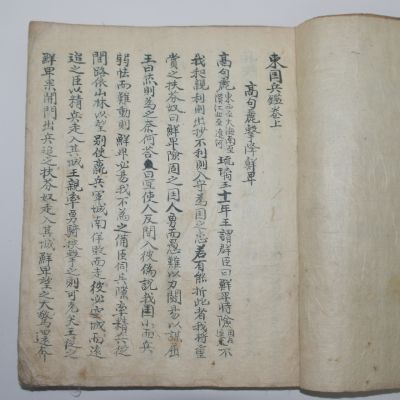 東国兵鑑卷上
高句麗擊降鮮卑
高句麗東西至大海南至漢江北至遼河琉璃王十一年王謂群臣曰鮮卑恃險不
我和親利則出抄不利則入守為国之患若有能折此者我将重
賞之扶芬奴曰鮮卑險固之国人勇而愚難以力鬪易以謀屈
王曰然則為之奈何答曰宜使人反間入彼偽説我国小而兵
弱怯而難動則鮮卑必易我不為之備臣伺其隙率精兵從
間路依山林以望別使羸兵軍城南佯敗而走彼必空城而遠
追之以精兵走入其城王親率勇騎挾擊之則可克矣王從之
鮮卑果開門出兵追之扶芬奴走入其城鮮卑望之大驚還奔